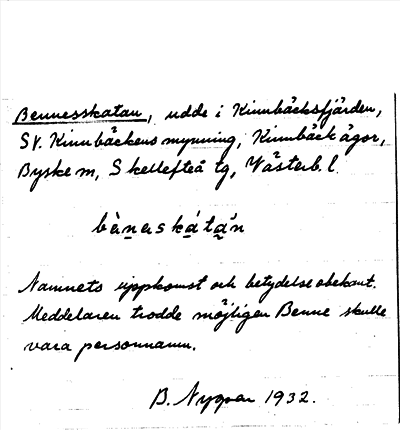 Bennesskatan, udde i Kinnbäcksfjärden,
SV. Kinnbäckens mynning, Kinnbäck ägor,
Byske m, Skellefteå tg, Västerb. l.
bènerskátān
Namnets uppkomst och betydelse obekant.
Meddelaren trodde möjligen Benne skulle
vara personnamn.
B. Nygren 1932.